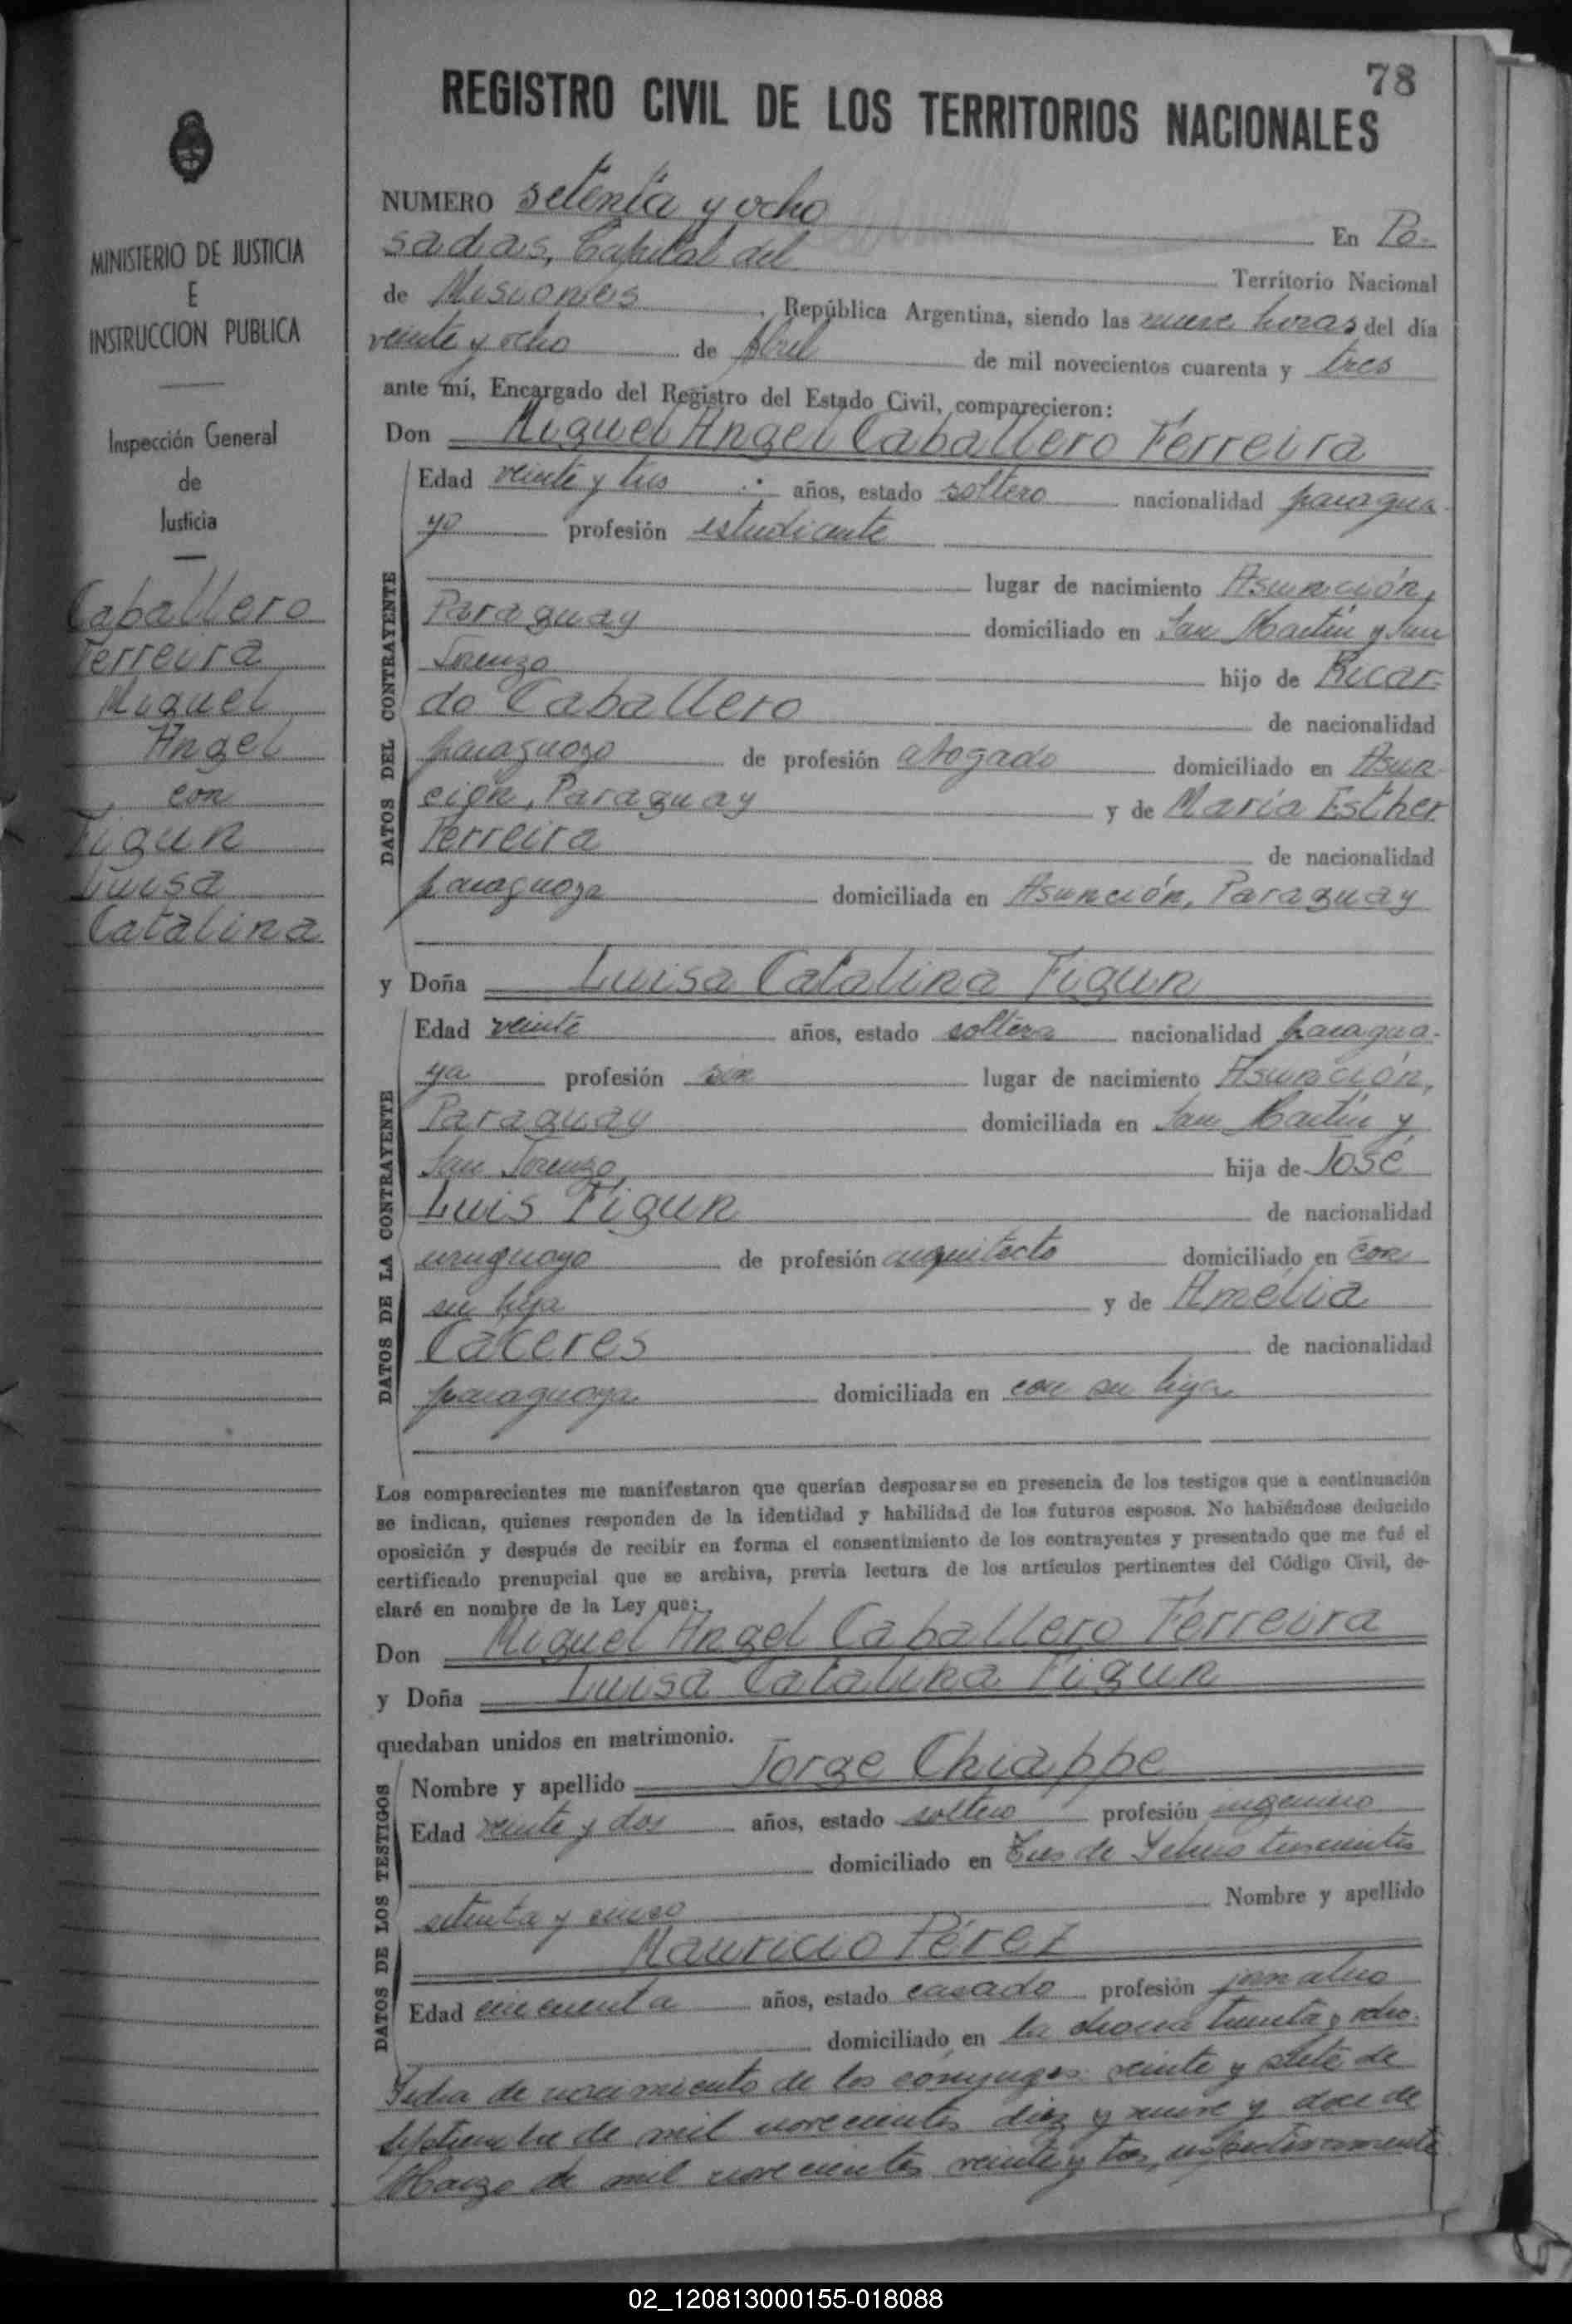 78
REGISTRO CIVIL DE LOS TERRITORIOS NACIONALES
MINISTERIO DE JUSTICIA
E
INSTRUCCION PUBLICA
Inspección General
de
Justicia
Caballero
Ferreira
Miguel
Angel
con
Figun
Luisa
Catalina
NUMERO setenta y ocho En Po-
sadas, Capital del Territorio Nacional
de Misiones, República Argentina, siendo las nueve horas del día
veinte y ocho de Abril de mil novecientos cuarenta y tres
ante mí, Encargado del Registro del Estado Civil, comparecieron:
Don Miguel Angel Caballero Ferreira
DATOS DEL CONTRAYENTE
Edad veinte y tres años, estado soltero nacionalidad paragua-
yo profesión estudiante
lugar de nacimiento Asunción,
Paraguay domiciliado en San Martín y San
Lorenzo hijo de Ricar-
do Caballero de nacionalidad
paraguayo de profesión abogado domiciliado en Asun-
ción, Paraguay y de María Esther
Ferreira de nacionalidad
paraguaya domiciliada en Asunción, Paraguay
y Doña Luisa Catalina Figun
DATOS DE LA CONTRAYENTE
Edad veinte años, estado soltera nacionalidad paragua-
ya profesión sin lugar de nacimiento Asunción,
Paraguay domiciliada en San Martín y
San Lorenzo, hija de José
Luis Figun de nacionalidad
uruguayo de profesión arquitecto domiciliado en con
su hija y de Amelia
Cáceres de nacionalidad
paraguaya domiciliada en con su hija
Los comparecientes me manifestaron que querían desposarse en presencia de los testigos que a continuación
se indican, quienes responden de la identidad y habilidad de los futuros esposos. No habiéndose deducido
oposición y después de recibir en forma el consentimiento de los contrayentes y presentado que me fué el
certificado prenupcial que se archiva, previa lectura de los artículos pertinentes del Código Civil, de-
claré en nombre de la Ley que:
Don Miguel Angel Caballero Ferreira
y Doña Luisa Catalina Figun
quedaban unidos en matrimonio.
DATOS DE LOS TESTIGOS
Nombre y apellido Jorge Chiappe
Edad veinte y dos años, estado soltero profesión ingeniero
domiciliado en Tres de Febrero trescientos
setenta y cinco Nombre y apellido
Mauricio Pérez
Edad cincuenta años, estado casado profesión jornalero
domiciliado en la chacra treinta y ocho.
Fecha de nacimiento de los cónyuges: veinte y siete de
Septiembre de mil novecientos diez y nueve y doce de
Marzo de mil novecientos veinte y tres, respectivamente.
02_120813000155-018088